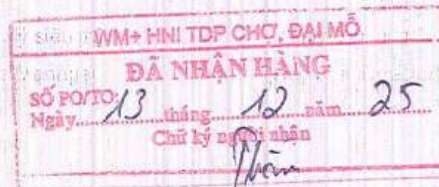 WM+ HNI TDP CHỢ, ĐẠI MỖ
ĐÃ NHẬN HÀNG
SỐ PO/TO:
Ngày 13 tháng 12 năm 25
Chữ ký người nhận